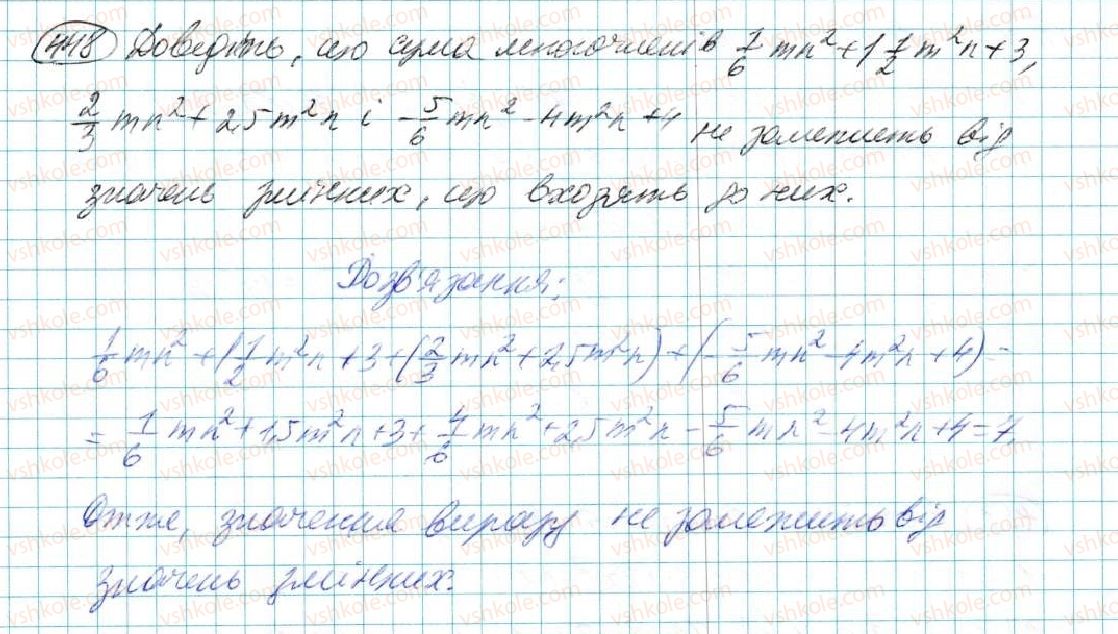 448 Доведіть, що сума многочленів 1/6 mn² + 1 1/2 m²n + 3,
2/3 mn² + 2,5m²n і -5/6 mn² - 4m²n + 4 не залежить від
значень змінних, що входять до них.
Розв'язання:
1/6 mn² + 1 1/2 m²n + 3 + (2/3 mn² + 2,5m²n) + (-5/6 mn² - 4m²n + 4) =
= 1/6 mn² + 1,5m²n + 3 + 4/6 mn² + 2,5m²n - 5/6 mn² - 4m²n + 4 = 7.
Отже, значення виразу не залежить від
значень змінних.